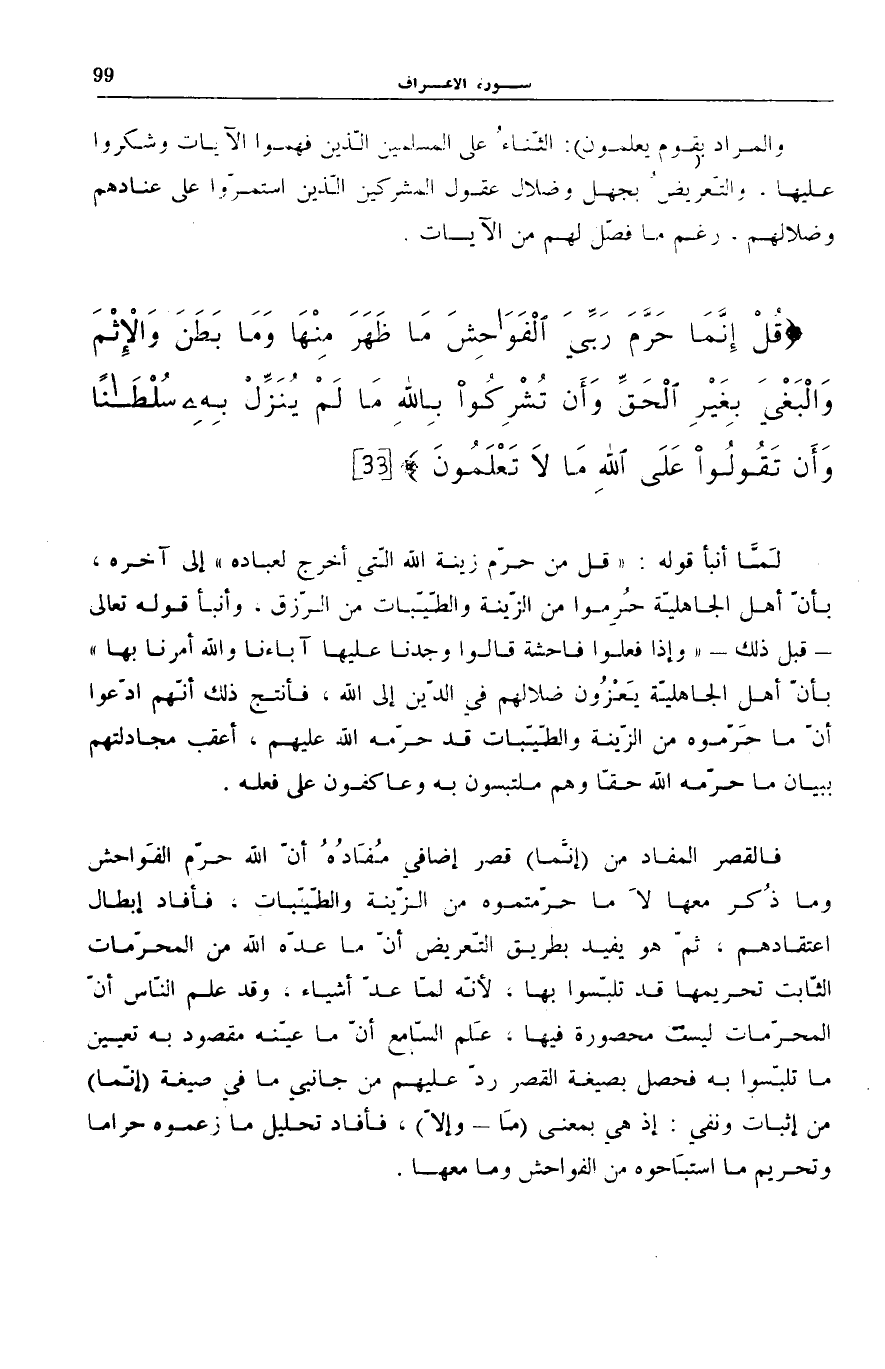 سورة الاعراف 99
والمراد بقوم يعلمون): الثّناءُ على المسلمين الّذين فهموا الآيات وشكروا
عليها . والتّعريضُ بجهل وضلال عقول المشركين الّذين استمرّوا على عنادهم
وضلالهم . رغم ما فصّل لهم من الآيات .
﴿قُلْ إِنَّمَا حَرَّمَ رَبِّيَ ٱلْفَوَٰحِشَ مَا ظَهَرَ مِنْهَا وَمَا بَطَنَ وَالْإِثْمَ
وَالْبَغْيَ بِغَيْرِ ٱلْحَقِّ وَأَن تُشْرِكُواْ بِاللهِ مَا لَمْ يُنَزِّلْ بِهِۦ سُلْطَٰنًا
وَأَن تَقُولُواْ عَلَى ٱللهِ مَا لَا تَعْلَمُونَ﴾ [33]
لَمَّا أنبأ قوله : « قل من حرّم زينة الله الّتي أخرج لعباده » إلى آخره ،
بأنّ أهل الجاهليّة حُرِموا من الزّينة والطّيّبات من الرّزق . وأنبأ قوله تعالى
– قبل ذلك – « وإذا فعلوا فاحشة قالوا وجدنا عليها آباءنا والله أمرنا بها »
بأنّ أهل الجاهليّة يَعْزُون ضلالهم في الدّين إلى الله ، فأنتج ذلك أنّهم ادّعوا
أنّ ما حَرّموه من الزّينة والطّيّبات قد حرّمه الله عليهم ، أعقب مجادلتهم
ببيان ما حرّمه الله حقّا وهم ملتبسون به وعاكفون على فعله .
فالقصر المفاد من (إنَّما) قصر إضافي مُفَادُهُ أنّ الله حرّم الفَواحش
وما ذُكر معها لاَ ما حرّمتموه من الزّينة والطّيّبات ، فأفاد إبطال
اعتقادهم ، ثمّ هو يفيد بطريق التّعريض أنّ ما عدّه الله من المحرّمات
الثّابت تحريمها قد تلبّسوا بها ، لأنّه لمّا عدّ أشياء ، وقد علم النّاس أنّ
المحرّمات ليست محصورة فيها ، عَلم السّامع أنّ ما عيّنه مقصود به تعيين
ما تلبّسوا به فحصل بصيغة القصر ردّ عليهم من جانبي ما في صيغة (إنّما)
من إثبات ونفي : إذ هي بمعنى (مَا – وإلاّ) ، فأفاد تحليل ما زعموه حراما
وتحريم ما استبَاحوه من الفواحش وما معها .